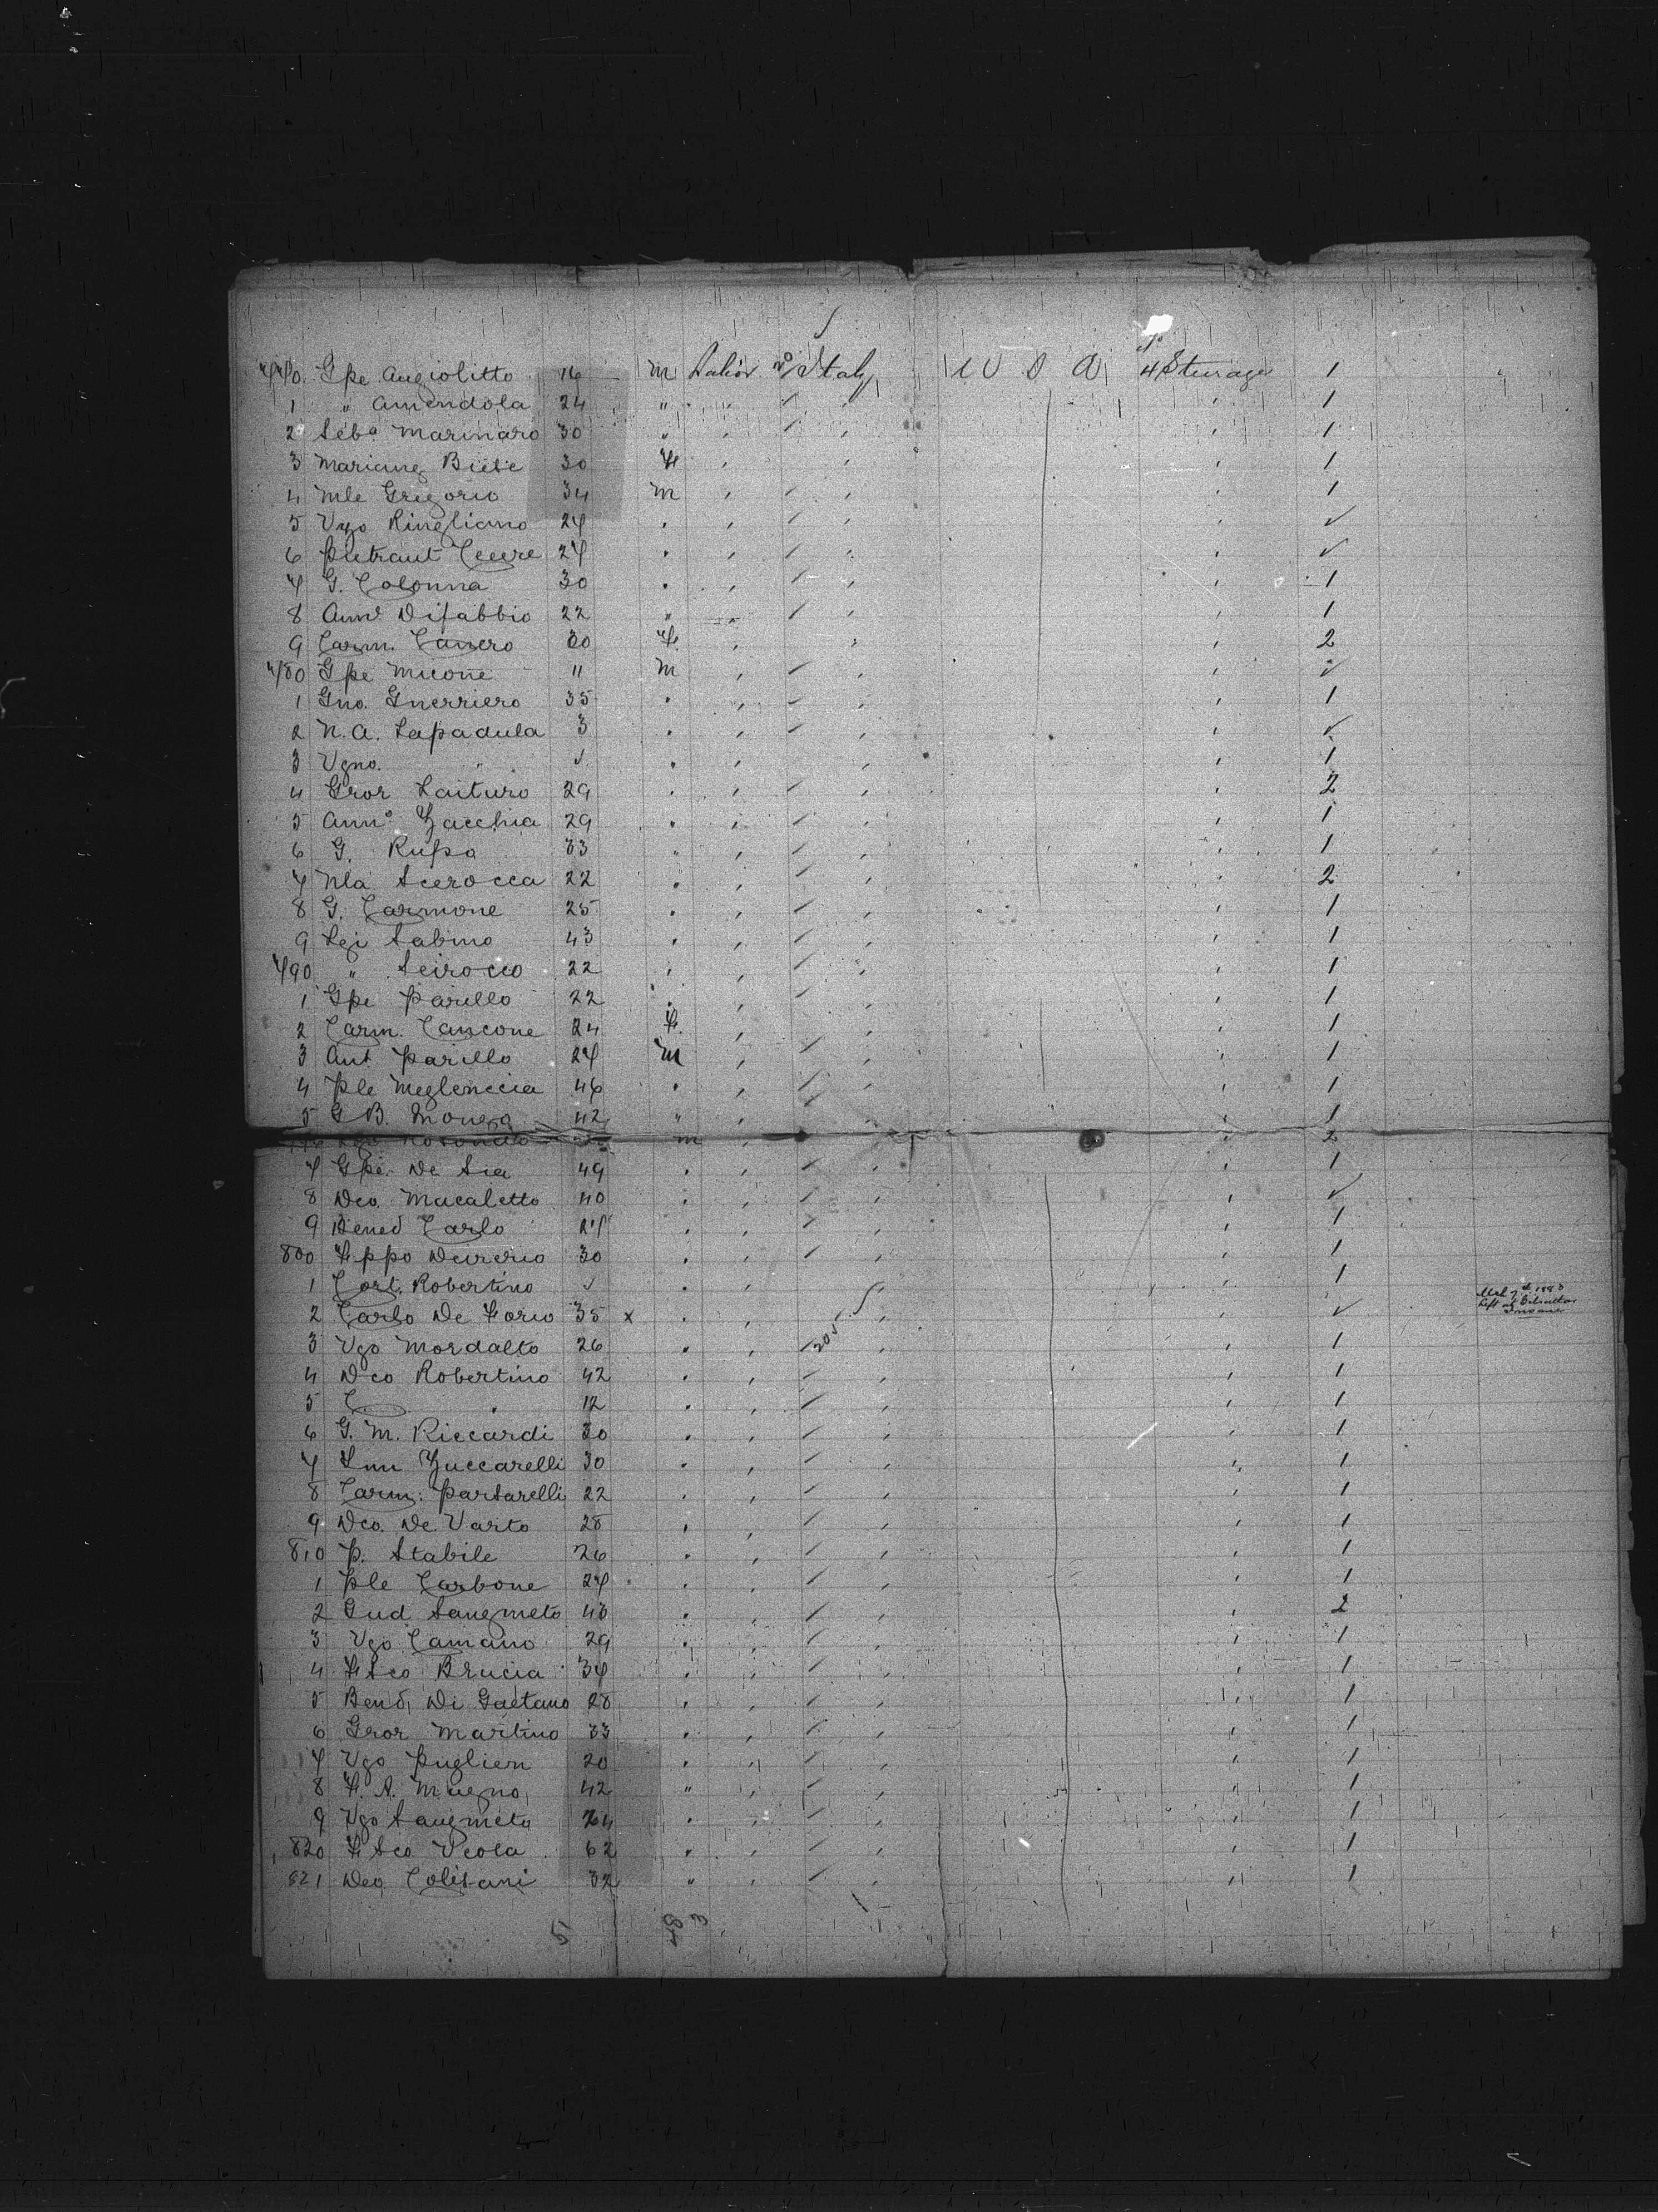 770. Gpe Angiolitto 16 m Labior Italy U S A 4 Steerage 1
1 " Amendola 24 " 1
2 Seba Marinaro 30 " 1
3 Mariang Biese 30 F 1
4 Mle Gregorio 34 m 1
5 Vgo Ringliano 27 ✓
6 Pietrant Cecere 27 ✓
7 G. Colonna 30 1
8 Anno Difabbio 22 " 1
9 Carm. Cancro 30 F. 2
780 Gpe Micone 11 m ✓
1 Gno. Guerriero 35 1
2 N. A. Lapadula 3 ✓
3 Vgno. " ✓ 1
4 Gror Laituro 29 2
5 Anno Zacchia 29 1
6 G. Rufso 33 1
7 Nla Scerocca 22 2
8 G. Carmone 25 1
9 Lgi Sabino 43 1
790 " Scirocco 22 1
1 Gpe Parillo 22 1
2 Carm. Cancone 24 F. 1
3 Ant Parillo 27 m 1
4 Ple Meglenccia 46 1
5 G B. Monega 42 " 1
m 2
7 Gpe. De Sia 49 1
8 Dco. Mucaletto 40 ✓
9 Bened Carlo 27 1
800 Fppo Deirerio 30 1
1 Cort. Robertino ✓ 1
2 Carlo De Forio 35 x ✓ left at Gibraltar Insane
3 Vgo Mordalto 26 205 1
4 Dco Robertino 42 1
5 C. " 12 1
6 G. M. Riccardi 30 1
7 Lnn Zuccarelli 30 1
8 Carm: Partarelli 22 1
9 Dco. De Varto 28 1
810 P. Stabile 26 1
1 Ple Carbone 27 1
2 Gud Sangmeto 43 2
3 Vgo Camano 29 1
4 Fsco Brucia 37 1
5 Bend, Di Gaetano 28 1
6 Gror Martino 33 1
7 Vgo Puglien 20 1
8 F. A. Magno 42 " 1
9 Vgo Sangmeto 24 1
820 Fsco Veola 62 1
821 Dco Colisani 32 " 1
5